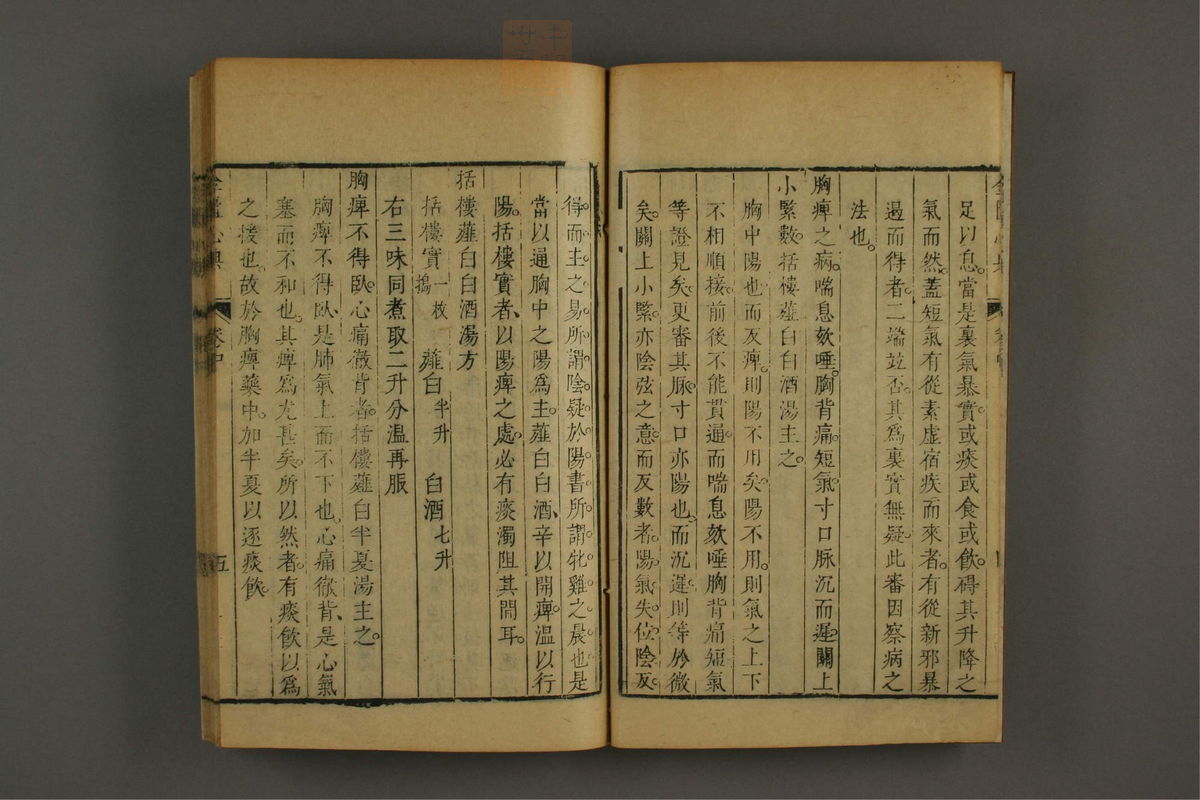 足以息。當是裏氣暴實。或痰或食或飲。碍其升降之
氣而然。蓋短氣有從素虛宿疾而來者。有從新邪暴
遏而得者。二端並否。其爲裏實無疑。此審因察病之
法也。
胸痺之病。喘息欬唾。胸背痛。短氣。寸口脉沉而遲。關上
小緊數。括蔞薤白白酒湯主之。
胸中陽也。而反痺。則陽不用矣。陽不用。則氣之上下
不相順接。前後不能貫通。而喘息欬唾胸背痛短氣
等證見矣。更審其脉。寸口亦陽也。而沉遲。則等於微
矣。關上小緊。亦陰弦之意。而反數者。陽氣失位。陰反
得而主之。易所謂陰疑於陽。書所謂牝雞之晨也。是
當以通胸中之陽爲主。薤白白酒、辛以開痺。温以行
陽。括樓實者、以陽痺之處。必有痰濁阻其間耳。
括樓薤白白酒湯方
括樓實一枚搗 薤白半升 白酒七升
右三味同煮取二升分温再服
胸痺不得臥。心痛徹背者。括樓薤白半夏湯主之。
胸痺不得臥、是肺氣上而不下也。心痛徹背、是心氣
塞而不和也。其痺爲尤甚矣。所以然者。有痰飲以爲
之援也。故於胸痺藥中。加半夏以逐痰飲。
金匱心典 卷中 五